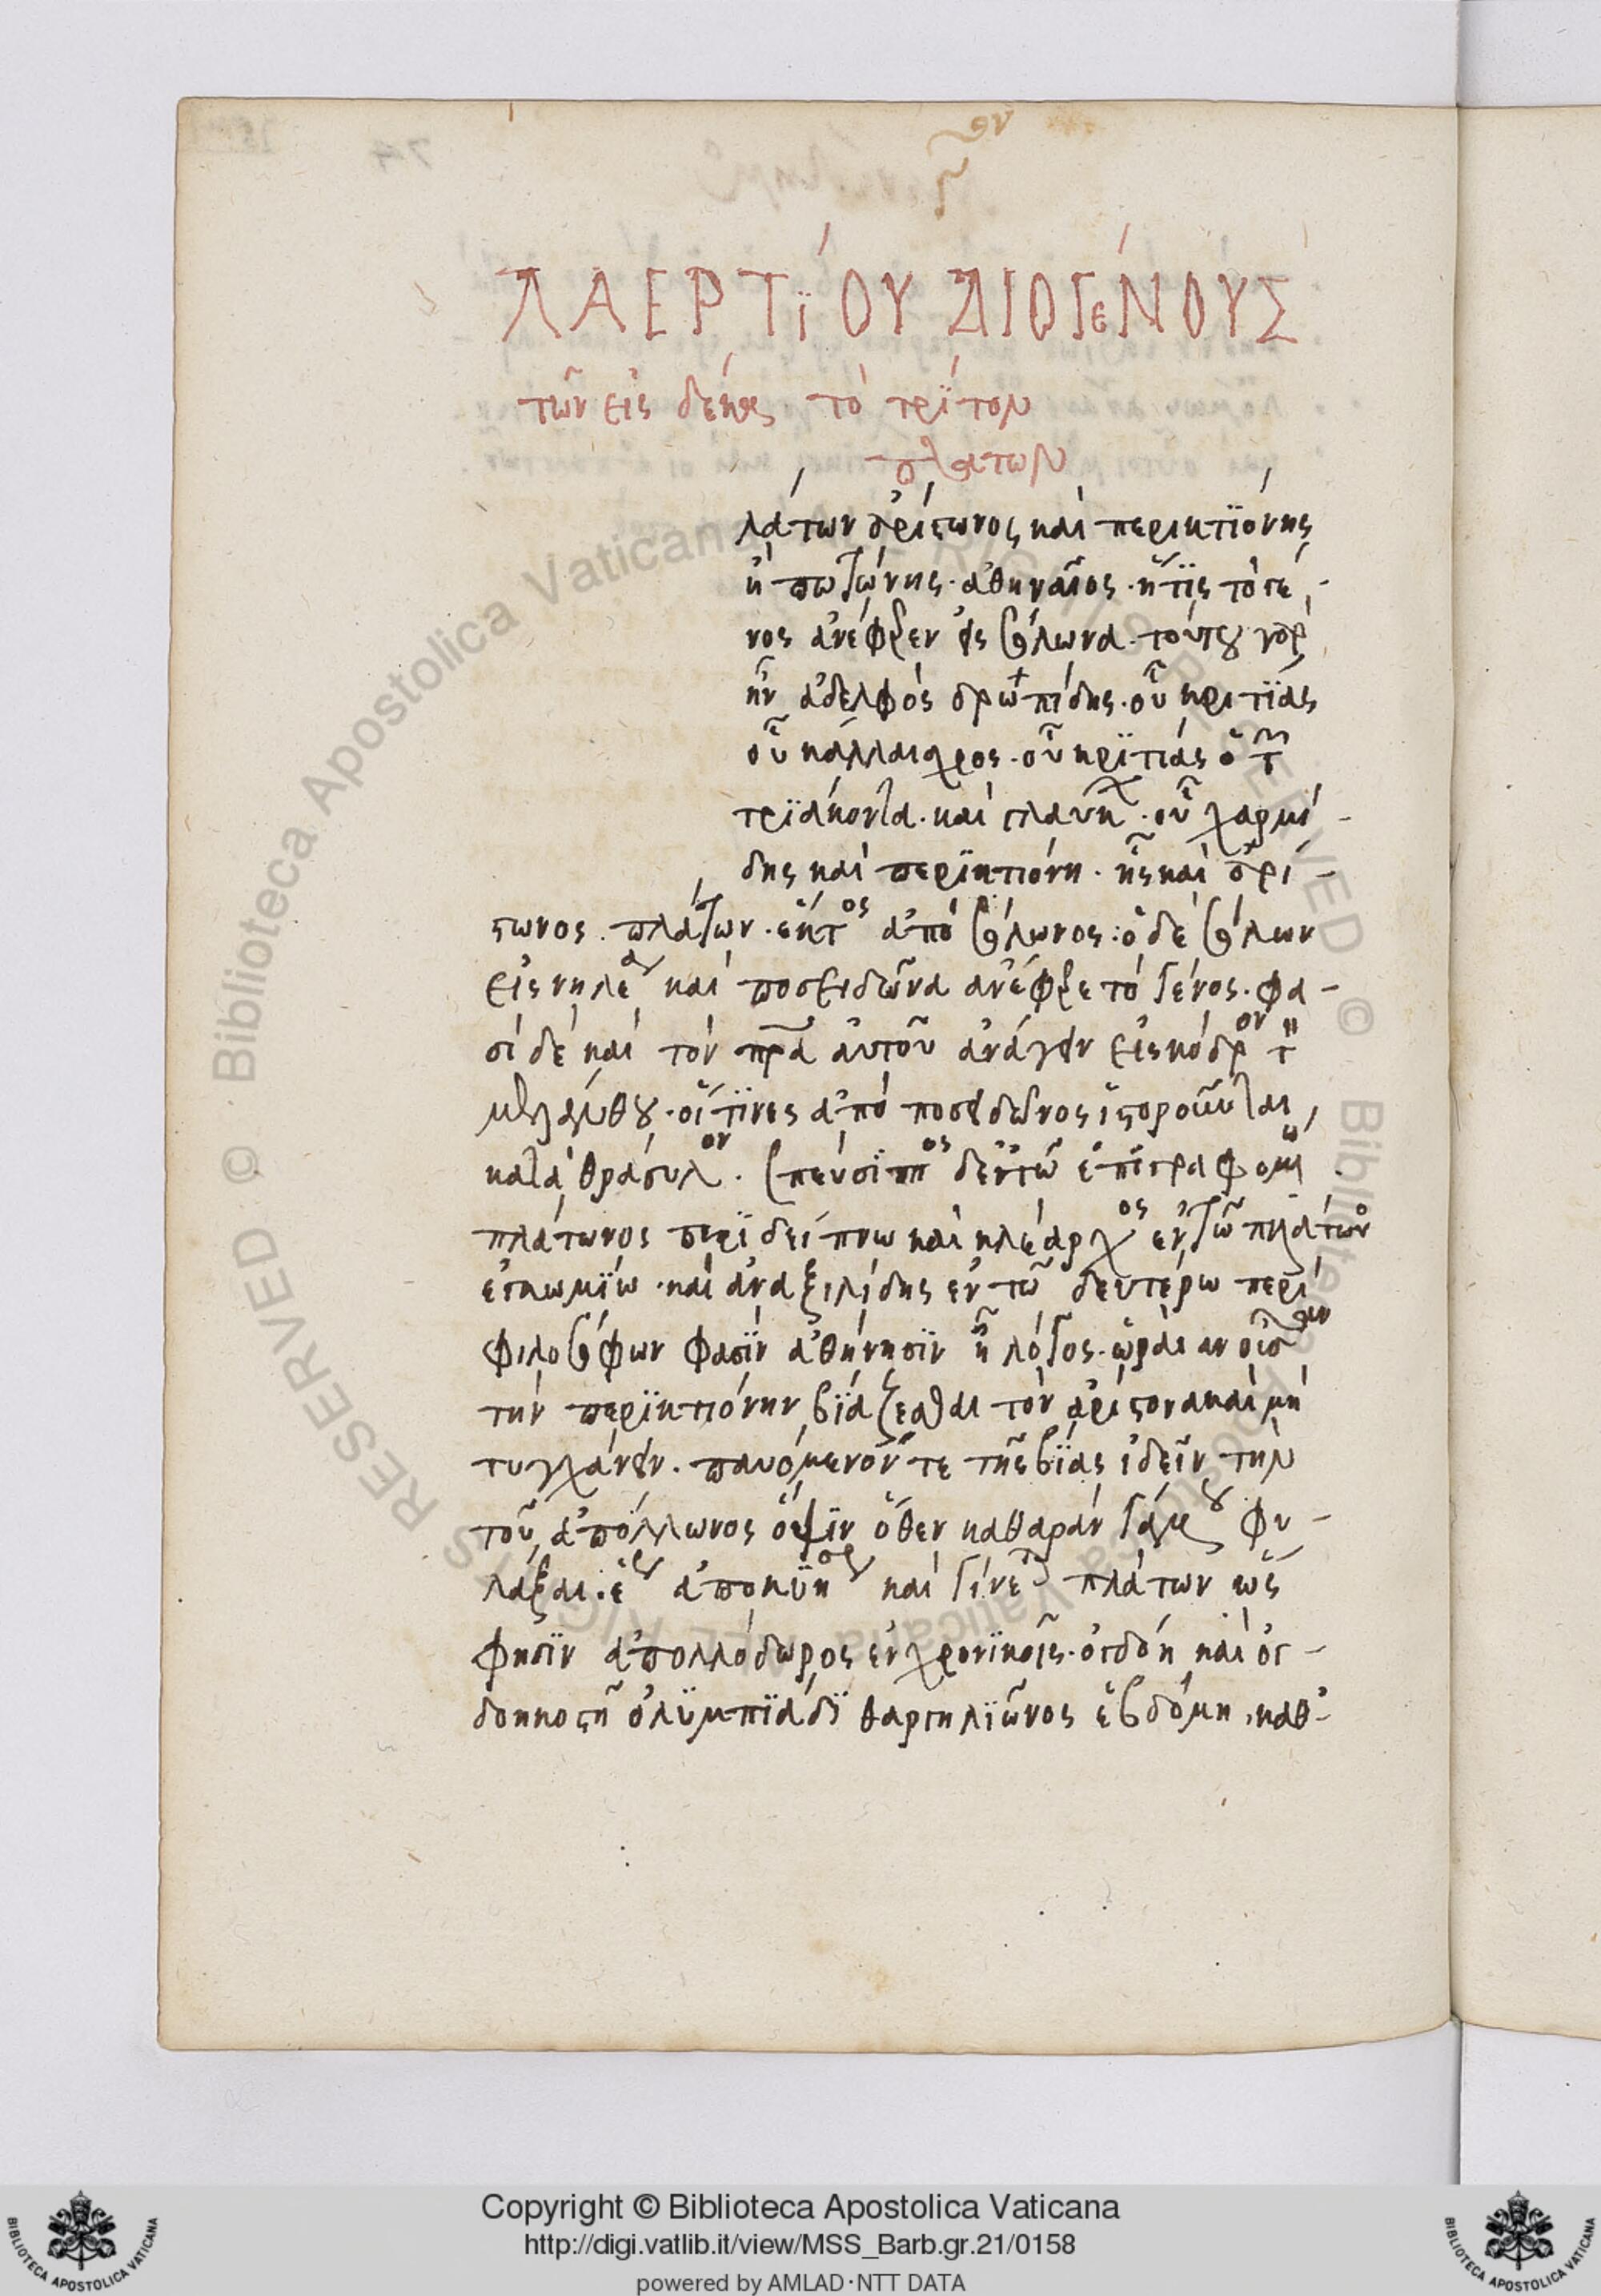 ΛΑΕΡΤΪ́ΟΥ ΔΙΟΓΕΝΟΥΣ
τῶν εἰς δέκα τὸ τρίτον
πλάτων
λάτων ἀρίστωνος καὶ περικτϊόνης
ἢ πωτώνης· ἀθηναῖος· ἥτϊς τὸ γέ-
νος ἀνέφερεν εἰς σόλωνα· τούτου γὰρ
ἦν ἀδελφὸς δρωπίδης· οὗ κριτίας
οὗ κάλλαισχρος· οὗ κρϊτίας ὁ τῶν
τρϊάκοντα· καὶ γλαύκων· οὗ χαρμί-
δης καὶ περϊκτιόνη· ἧς καὶ ἀρί-
στωνος πλάτων· ἕκτος ἀπὸ σόλωνος· ὁ δὲ σόλων
εἰς νηλέα καὶ ποσειδῶνα ἀνέφερε τὸ γένος· φα-
σὶ δὲ καὶ τὸν πρα αὐτοῦ ἀνάγειν εἰς κόδρον τὸν
μελάνθου· οἵτϊνες ἀπὸ ποσειδῶνος ἱστοροῦνται
κατὰ θράσυλον· σπεύσϊππος δ' ἐν τῶ ἐπιγραφομένω
πλάτωνος περϊδείπνω καὶ κλέαρχος ἐν τῶ πλάτωνος
ἐγκωμϊω· καὶ ἀναξιλίδης ἐν τῶ δευτέρω περὶ
φιλοσόφων φασϊν ἀθήνησϊν ἦν λόγος· ὡραίαν οὖσαν
τὴν περϊκτιόνην βϊάζεσθαι τὸν ἀρίστονα καὶ μὴ
τυγχάνειν· παυόμενόν τε τῆς βϊας ἰδεῖν τὴν
τοῦ ἀπόλλωνος ὄψϊν ὅθεν καθαρὰν γάμου φυ-
λάξαι· ἕως ἀποκυήσεως καὶ γίνεται πλάτων ὥς
φησϊν ἀπολλόδωρος ἐν χρονϊκοῖς· ὀγδόη καὶ ὀγ-
δοηκοστῆ ὀλϋμπϊάδϊ θαργηλϊῶνος ἑβδόμη· καθ'-
Copyright © Biblioteca Apostolica Vaticana
http://digi.vatlib.it/view/MSS_Barb.gr.21/0158
powered by AMLAD·NTT DATA